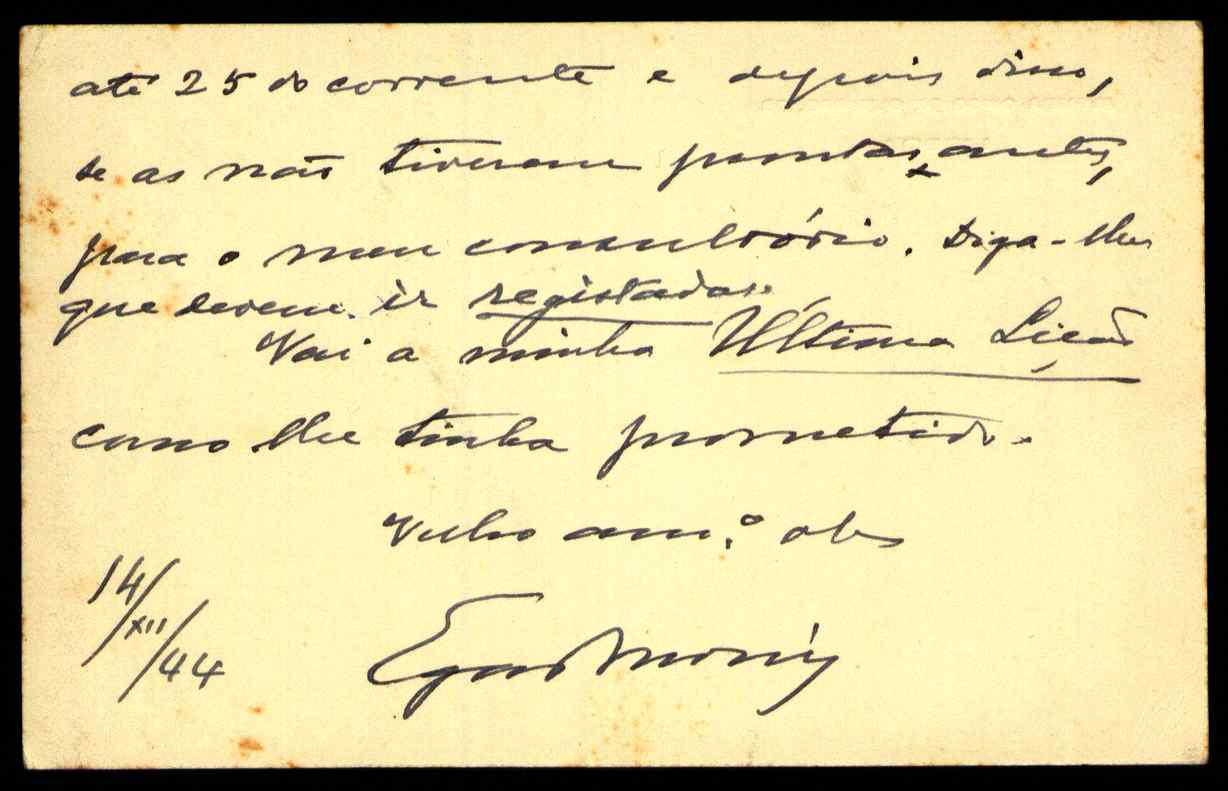 até 25 do corrente e depois disso,
se as não tiverem prontas antes,
para o meu consultório. Diga-lhes
que devem ir registadas.
Vai a minha Última Lição
como lhe tinha prometido.
Velho am.º obg
14/XII/44
Egas Moniz